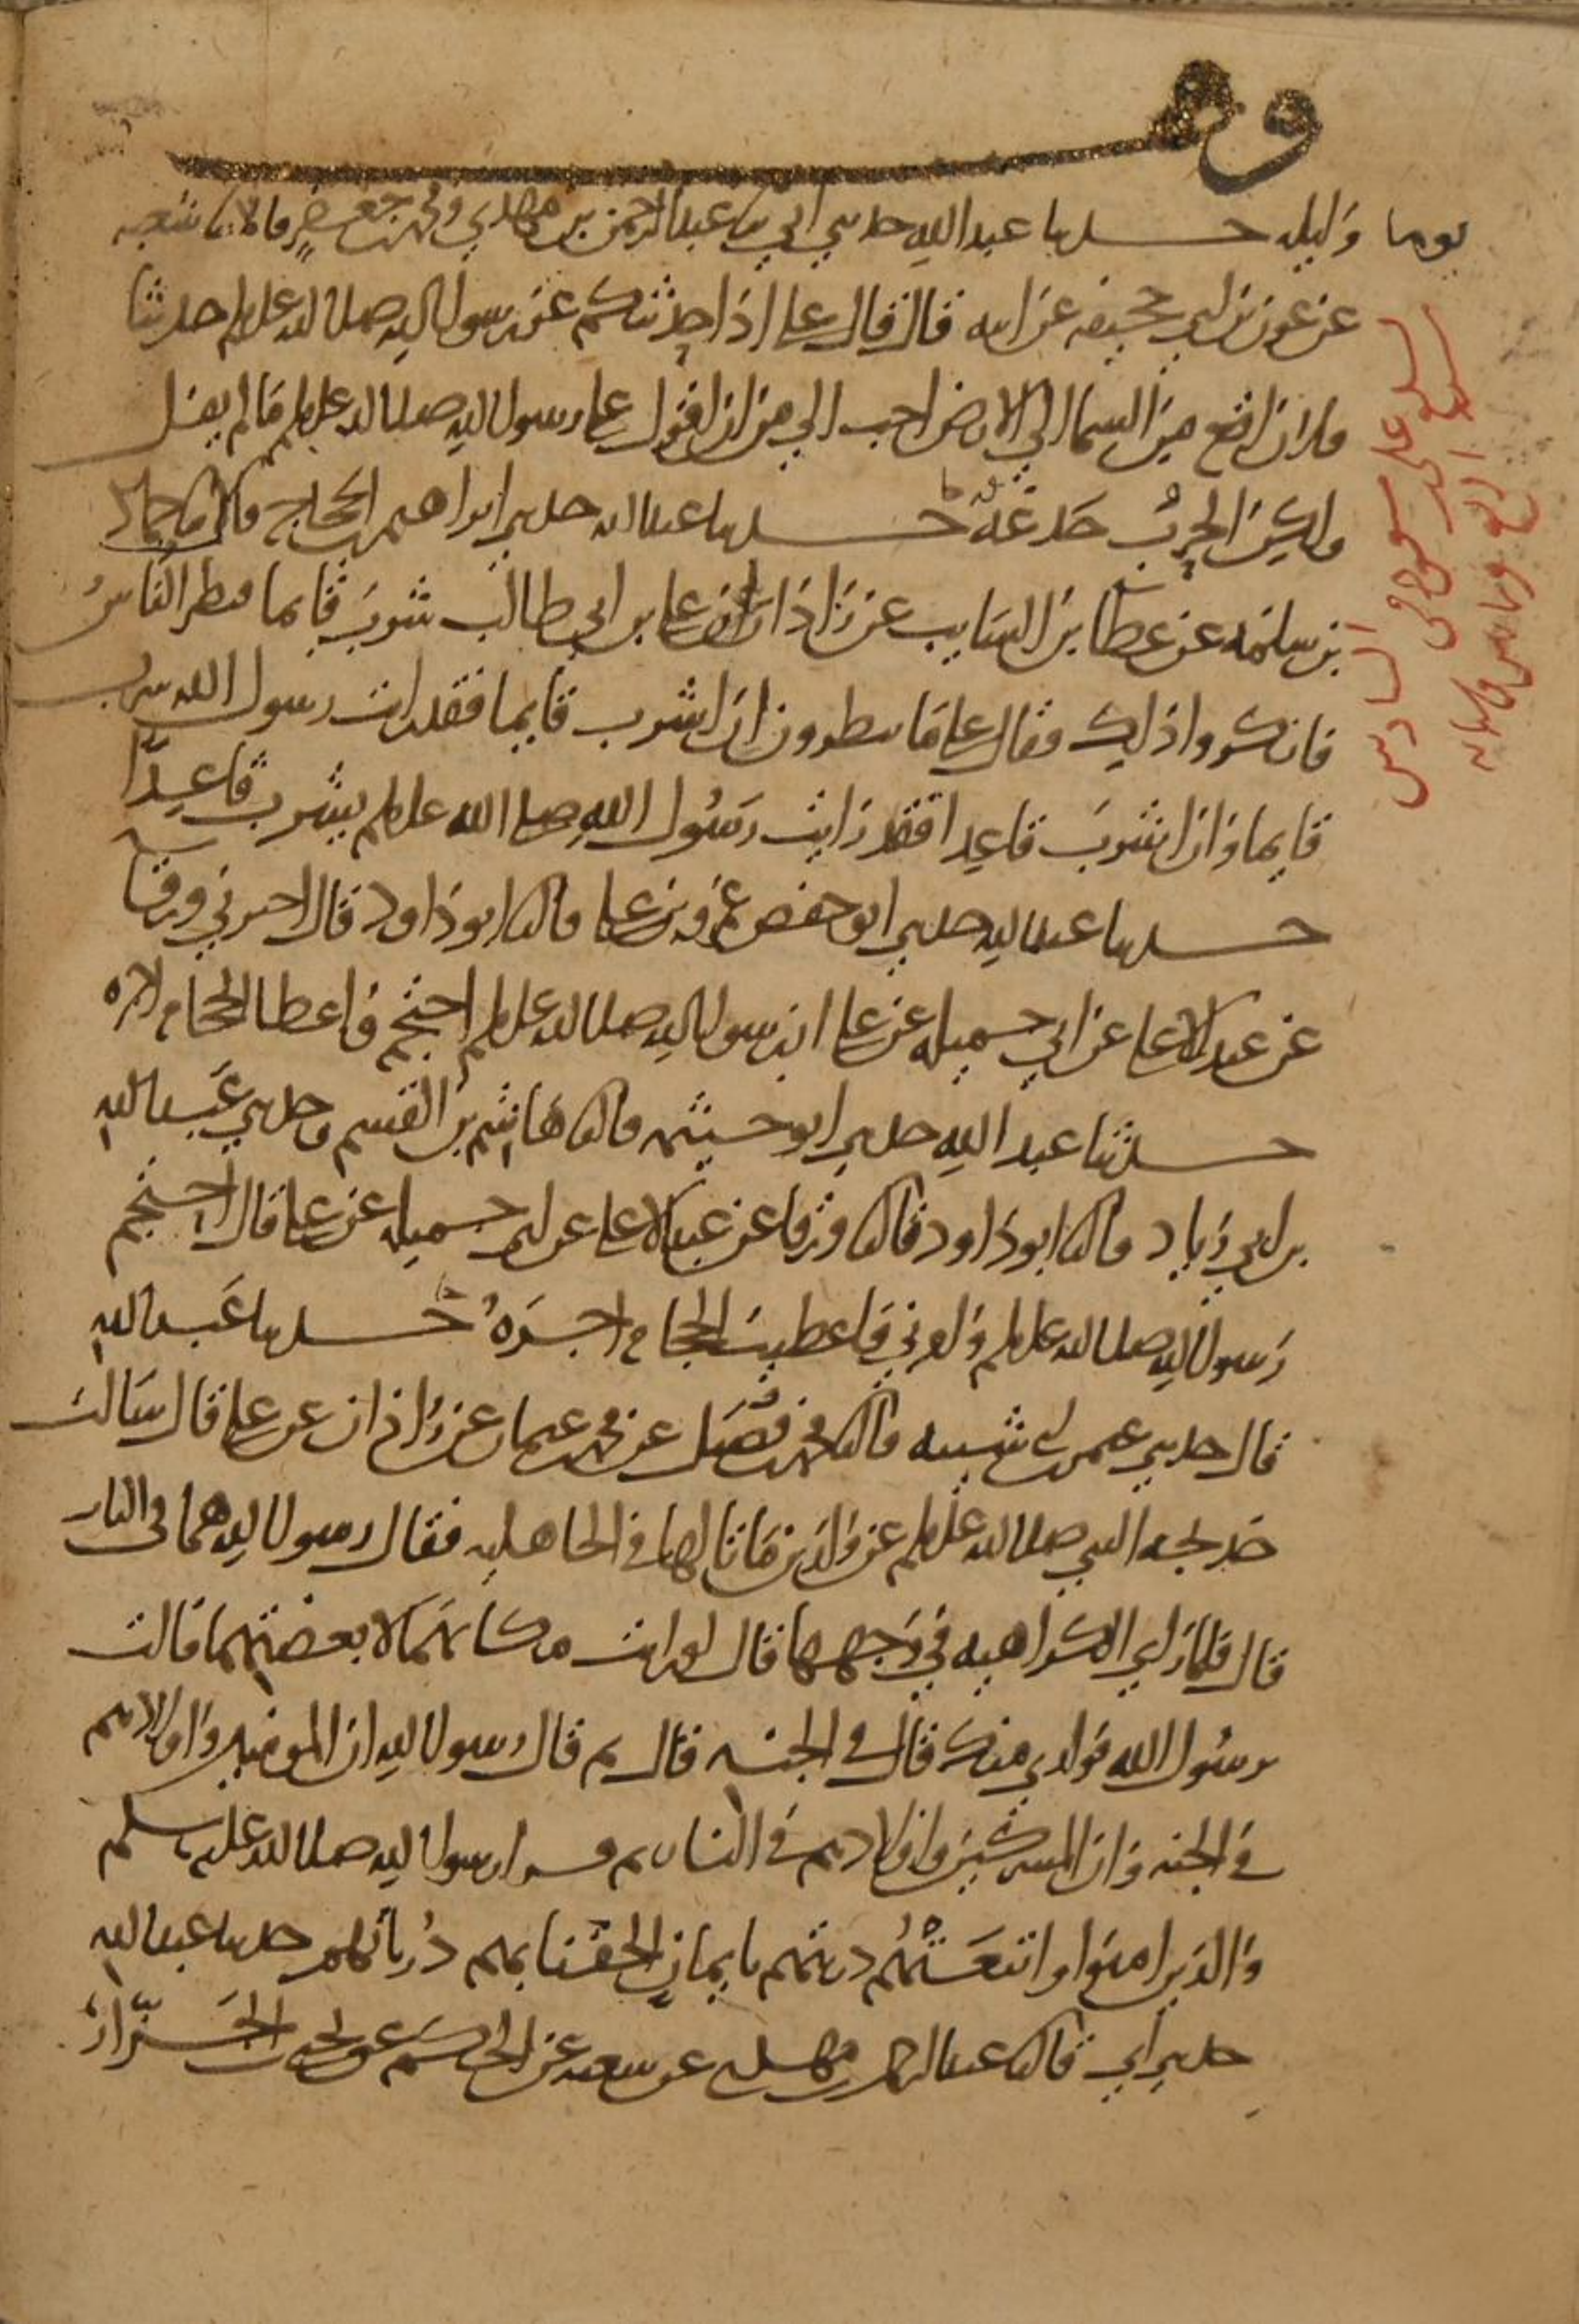 وقف
يوما وليله حدثنا عبد الله حدثني ابي ثنا عبد الرحمن بن مهدي ومحمد بن جعفر قالا ثنا شعبه
عن عون بن ابي جحيفه عن ابيه قال قال علي اذا حدثتكم عن رسول الله صلى الله عليه وسلم حديثا
فلان اقع من السما الي الارض احب الي من ان اقول على رسول الله صلى الله عليه وسلم ما لم يقل
ولكن الحرب خدعة حدثنا عبد الله حدثني ابراهيم بن الحجاج قال ثنا حماد
بن سلمه عن عطا بن السايب عن زاذان ان علي بن ابي طالب شرب قايما فنظر الناس
فانكروا ذلك فقال علي ما تنظرون ان اشرب قايما فقد رايت رسول الله يشرب
قايما وان اشرب قاعدا فقد رايت رسول الله صلى الله عليه وسلم يشرب قاعدا
حدثنا عبد الله حدثني ابو حفص عمرو بن علي قال ثنا ابو داود قال اخبرني ورقا
عن عبد الاعلى عن ابي جميله عن علي ان رسول الله صلى الله عليه وسلم احتجم فاعطا الحجام اجره
حدثنا عبد الله حدثني ابو خيثمه قال ثنا هاشم بن القسم وحدثني عبد الله
بن ابي زياد قال ثنا ابو داود قال ثنا ورقا عن عبد الاعلى عن ابي جميله عن علي قال احتجم
رسول الله صلى الله عليه وسلم وامرني فاعطيت الحجام اجره حدثنا عبد الله
قال حدثني عثمن بن ابي شيبه قال ثنا محمد بن فضيل عن محمد بن عثمان عن زاذان عن علي قال سالت
خديجه النبي صلى الله عليه وسلم عن ولدين ماتا لها في الجاهليه فقال رسول الله هما في النار
قال فلما راي الكراهيه في وجهها قال لو رايت مكانهما لابغضتهما قالت
يرسول الله فولدي منك قال في الجنه قال ثم قال رسول الله ان المومنين واولادهم
في الجنه وان المشركين واولادهم في النار ثم قرا رسول الله صلى الله عليه وسلم
والذين امنوا واتبعتهم ذريتهم بايمان الحقنا بهم ذرياتهم حدثنا عبد الله
حدثني ابي قال ثنا عبد الرحمن بن مهدي عن شعبه عن الحكم عن يحيى بن الجزار